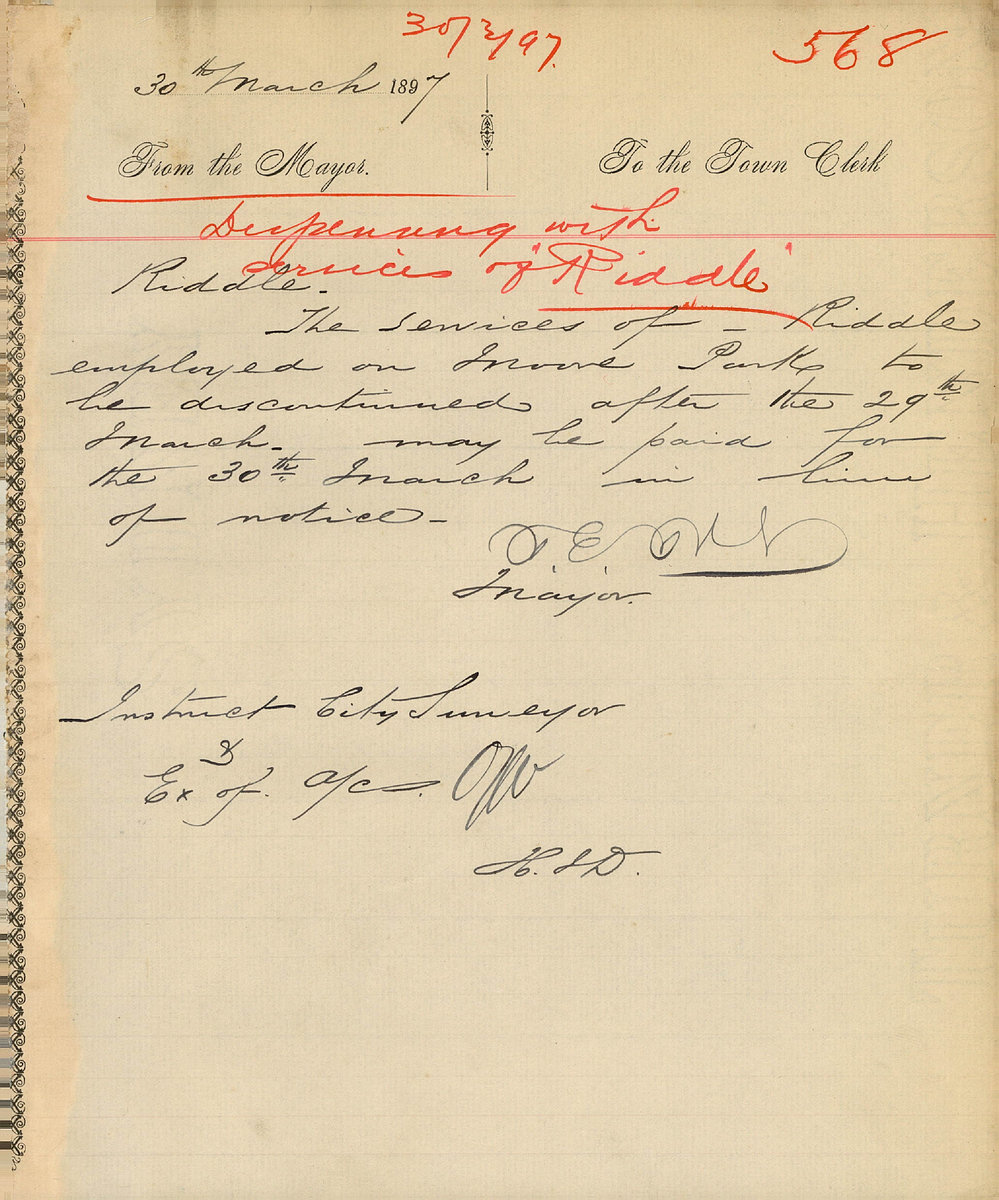 30/3/97.
568
30th March 1897
From the Mayor.
To the Town Clerk
Dispensing with
services of "Riddle"
Riddle.
The services of – Riddle
employed on Moore Park to
be discontinued after the 29th
March – may be paid for
the 30th March in lieu
of notice –
Mayor.
Instruct City Surveyor
&
Ex of. a/cs.
H.S.D.